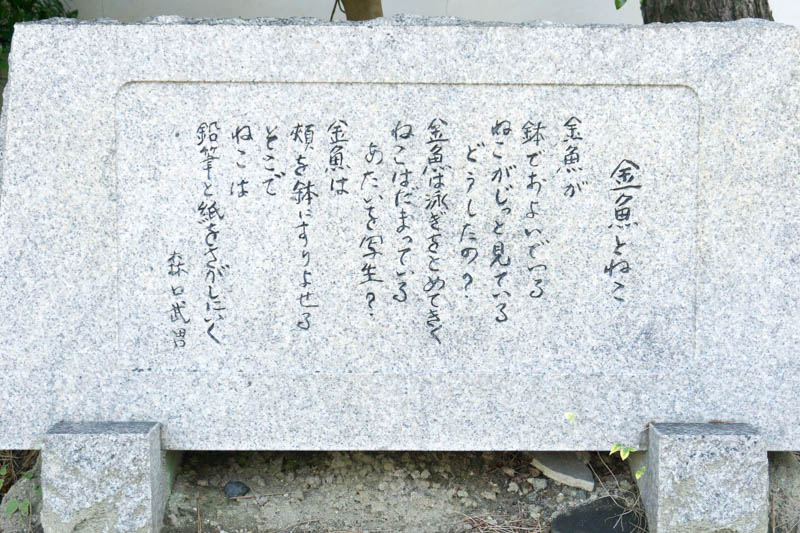 金魚とねこ
金魚が
鉢でおよいでいる
ねこがじっと見ている
どうしたの？
金魚は泳ぎをとめてきく
ねこはだまっている
あたいを写生？
金魚は
頬を鉢にすりよせる
そこで
ねこは
鉛筆と紙をさがしにいく
森口武男